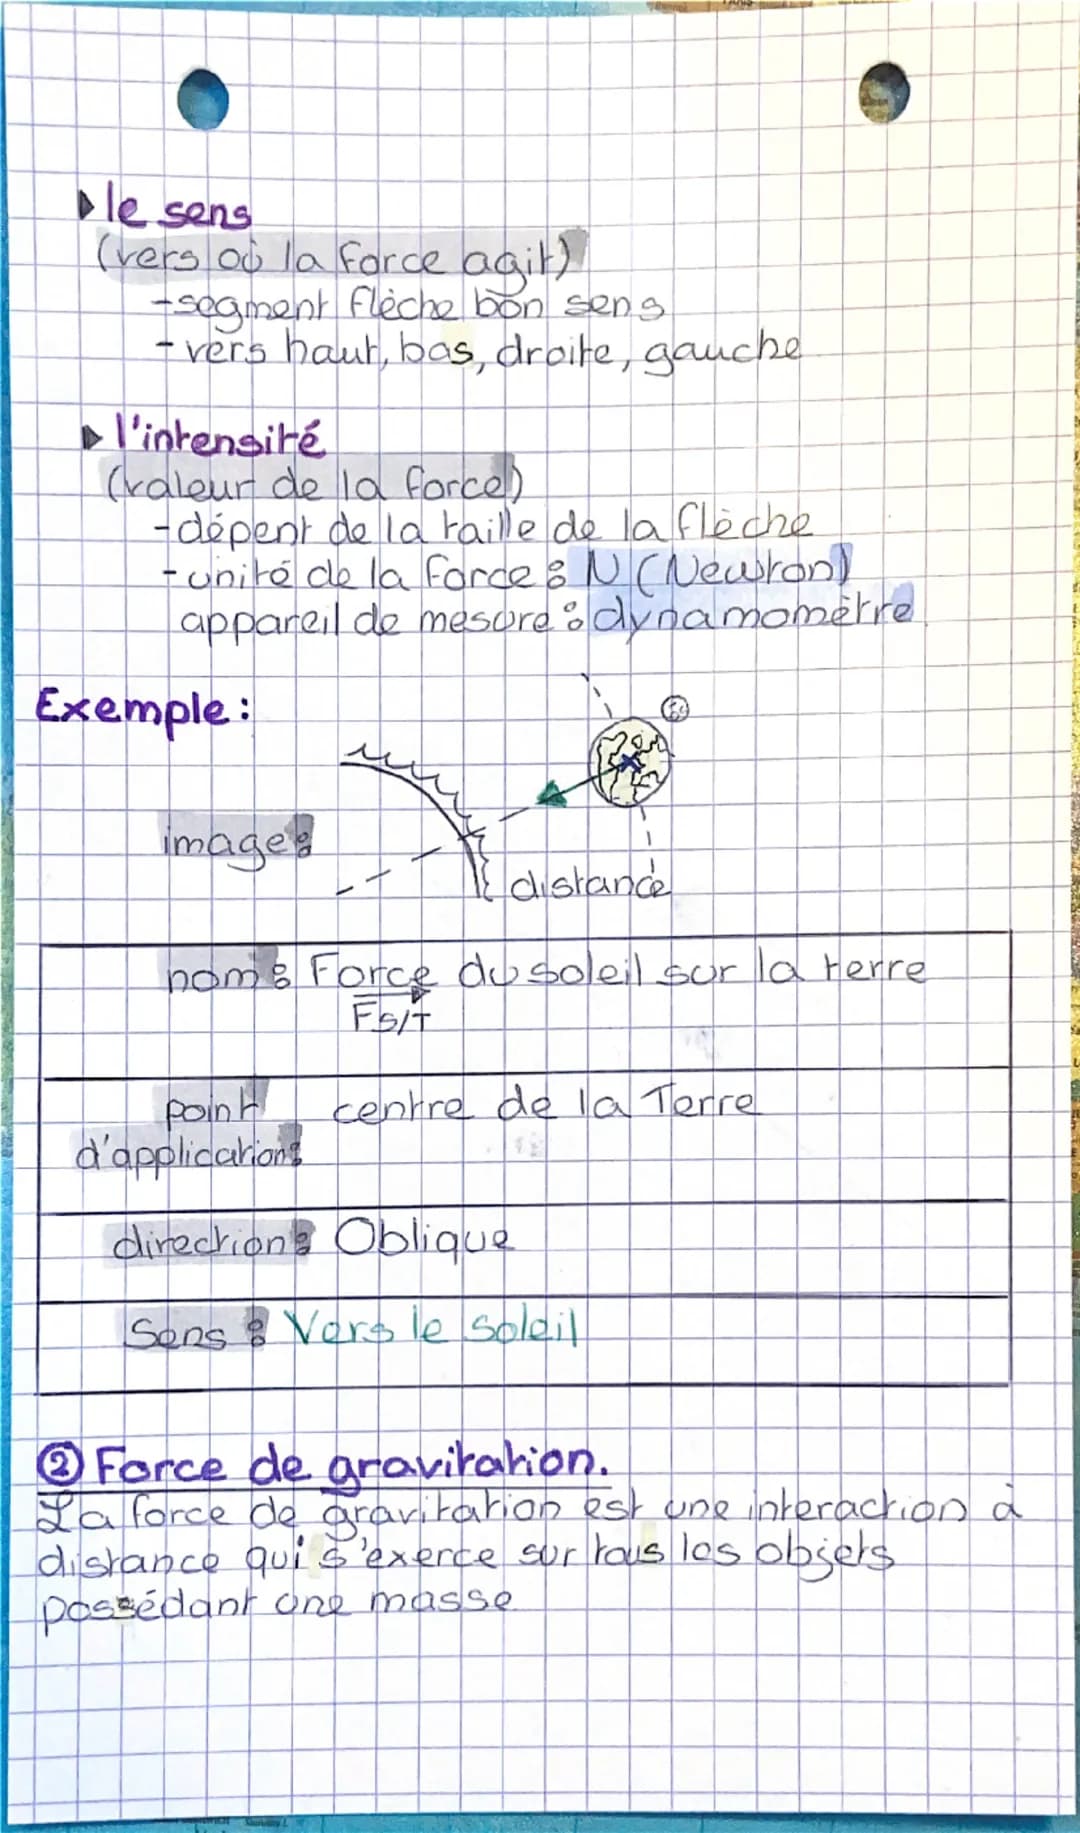 le sens
(vers où la force agit)
-segment flèche bon sens
-vers haut, bas, droite, gauche
l'intensité
(valeur de la force)
-dépent de la taille de la flèche
-unité de la force : N (Newton)
appareil de mesure : dynamomètre
Exemple :
image :
distance
nom : Force du soleil sur la terre
FS/T
point centre de la Terre
d'application :
direction : Oblique
Sens : Vers le soleil
② Force de gravitation.
La force de gravitation est une interaction à
distance qui s'exerce sur tous les objets
possédant une masse